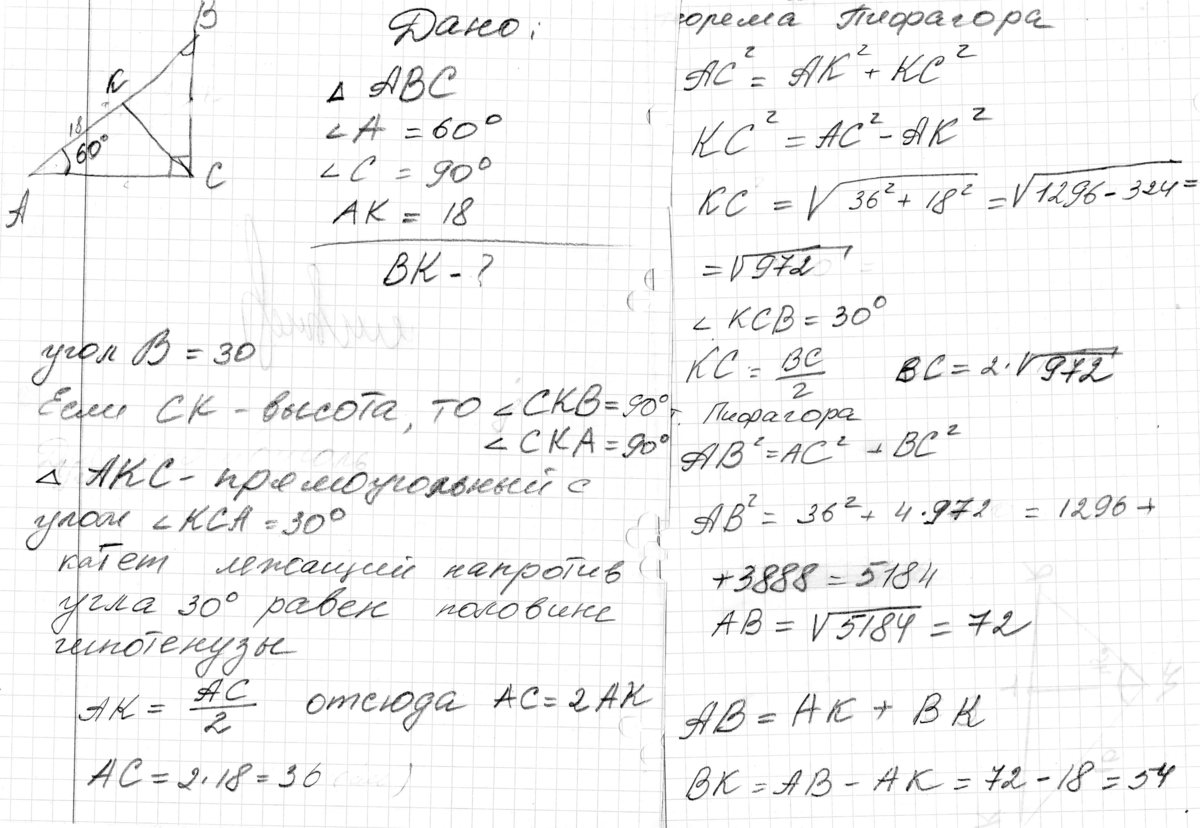 B
К
18
60°
A
C
Дано:
△ ABC
∠A = 60°
∠C = 90°
AK = 18
BK - ?
угол B = 30
Если CK - высота, то ∠CKB = 90°
∠CKA = 90°
△ AKC - прямоугольный с
углом ∠KCA = 30°
катет лежащий напротив
угла 30° равен половине
гипотенузы
AK = AC/2 отсюда AC = 2AK
AC = 2·18 = 36
орема Пифагора
AC² = AK² + KC²
KC² = AC² - AK²
KC = √36² + 18² = √1296 - 324 =
= √972
∠KCB = 30°
KC = BC/2 BC = 2·√972
т. Пифагора
AB² = AC² + BC²
AB² = 36² + 4·972 = 1296 +
+ 3888 = 5184
AB = √5184 = 72
AB = AK + BK
BK = AB - AK = 72 - 18 = 54